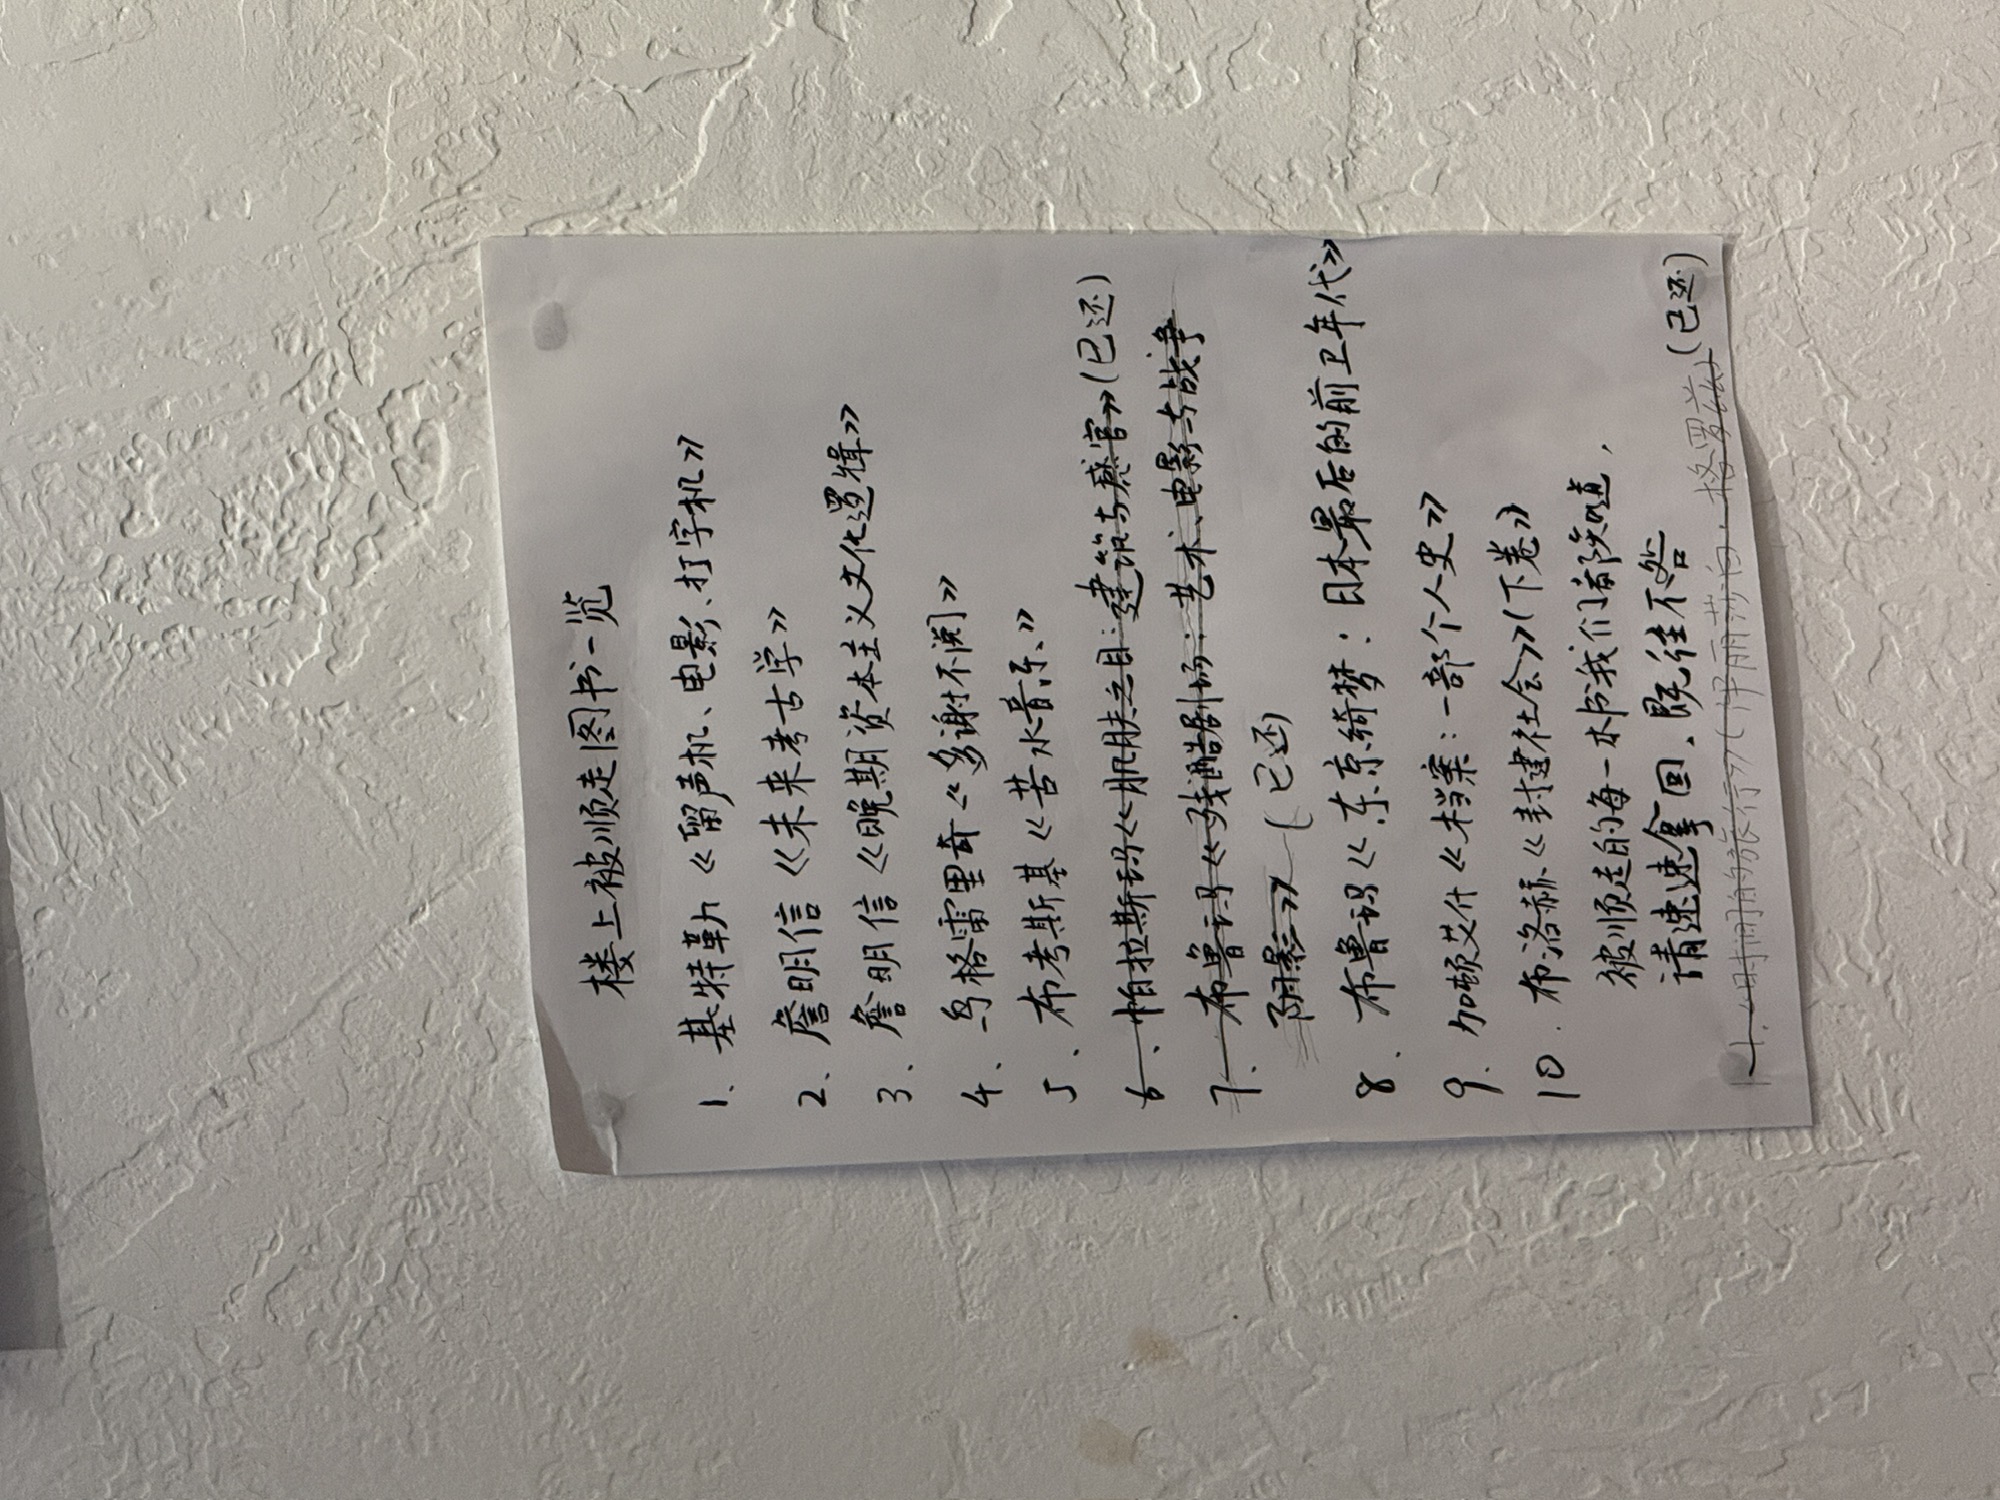 楼上被顺走图书一览
1. 基特勒《留声机、电影、打字机》
2. 詹明信《未来考古学》
3. 詹明信《晚期资本主义文化逻辑》
4. 乌格雷里奇《多谢不阅》
5. 布考斯基《苦水音乐》
6、帕拉斯玛《肌肤之目：建筑与感官》（已还）
7、布鲁玛《残酷剧场：艺术、电影与战争
阴影》（已还）
8. 布鲁玛《东京绮梦：日本最后的前卫年代》
9. 加顿艾什《档案：一部个人史》
10. 布洛赫《封建社会》（下卷）
被顺走的每一本书我们都险值，
请速速拿回、既往不咎
11.《时间的旅行》（伊丽莎白·格罗兹）（已还）